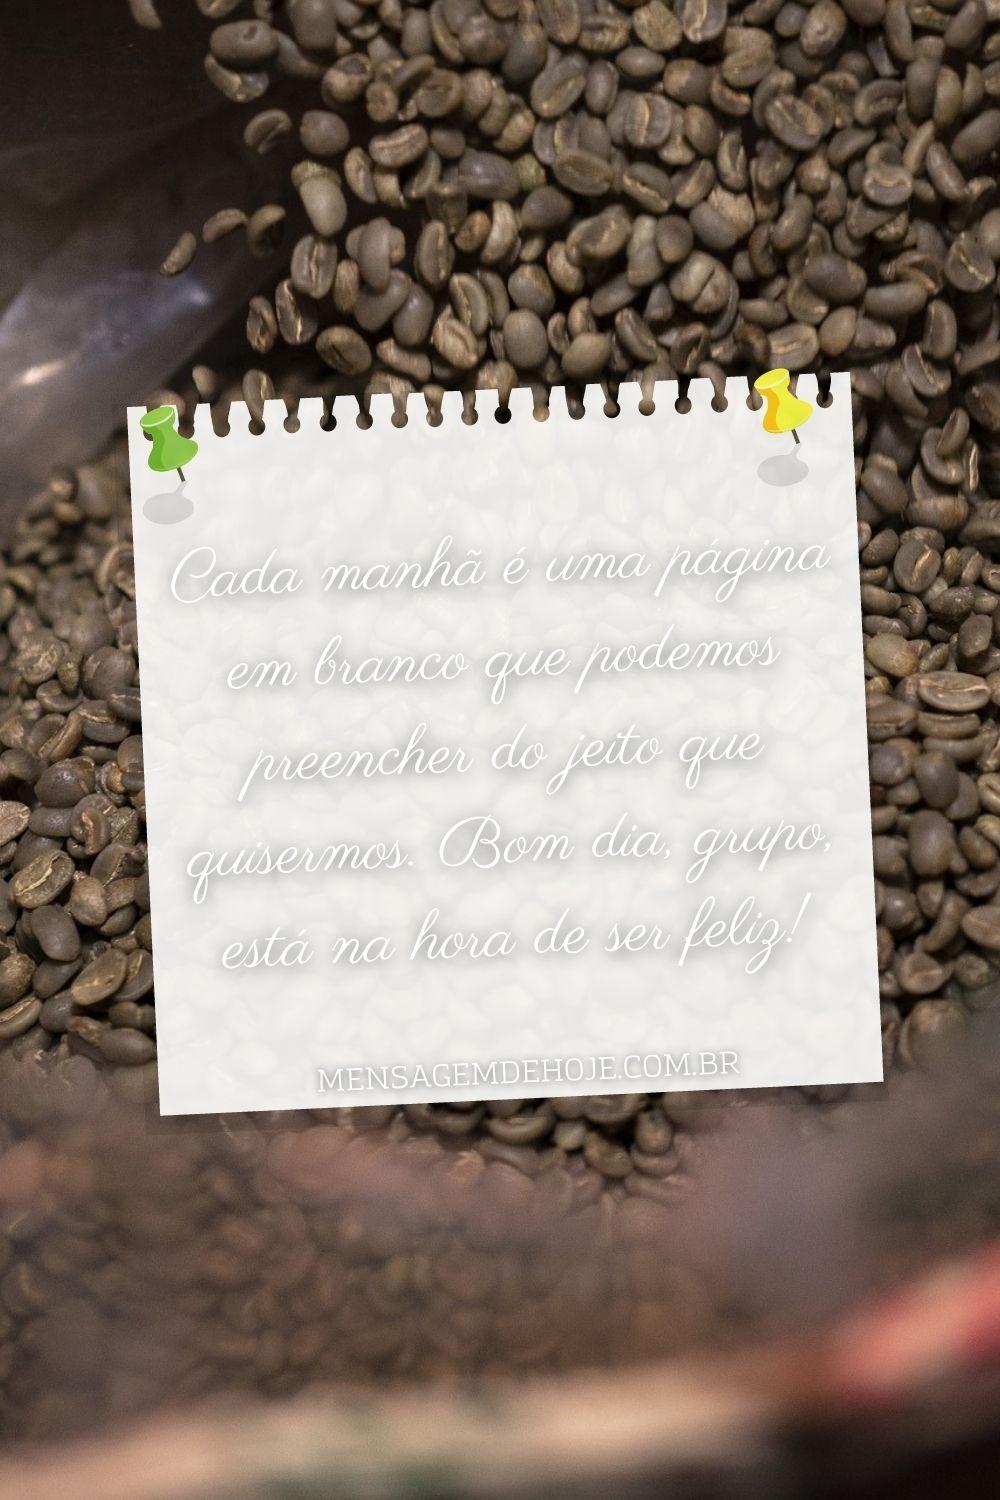 Cada manhã é uma página
em branco que podemos
preencher do jeito que
quisermos. Bom dia, grupo,
está na hora de ser feliz!
MENSAGEMDEHOJE.COM.BR